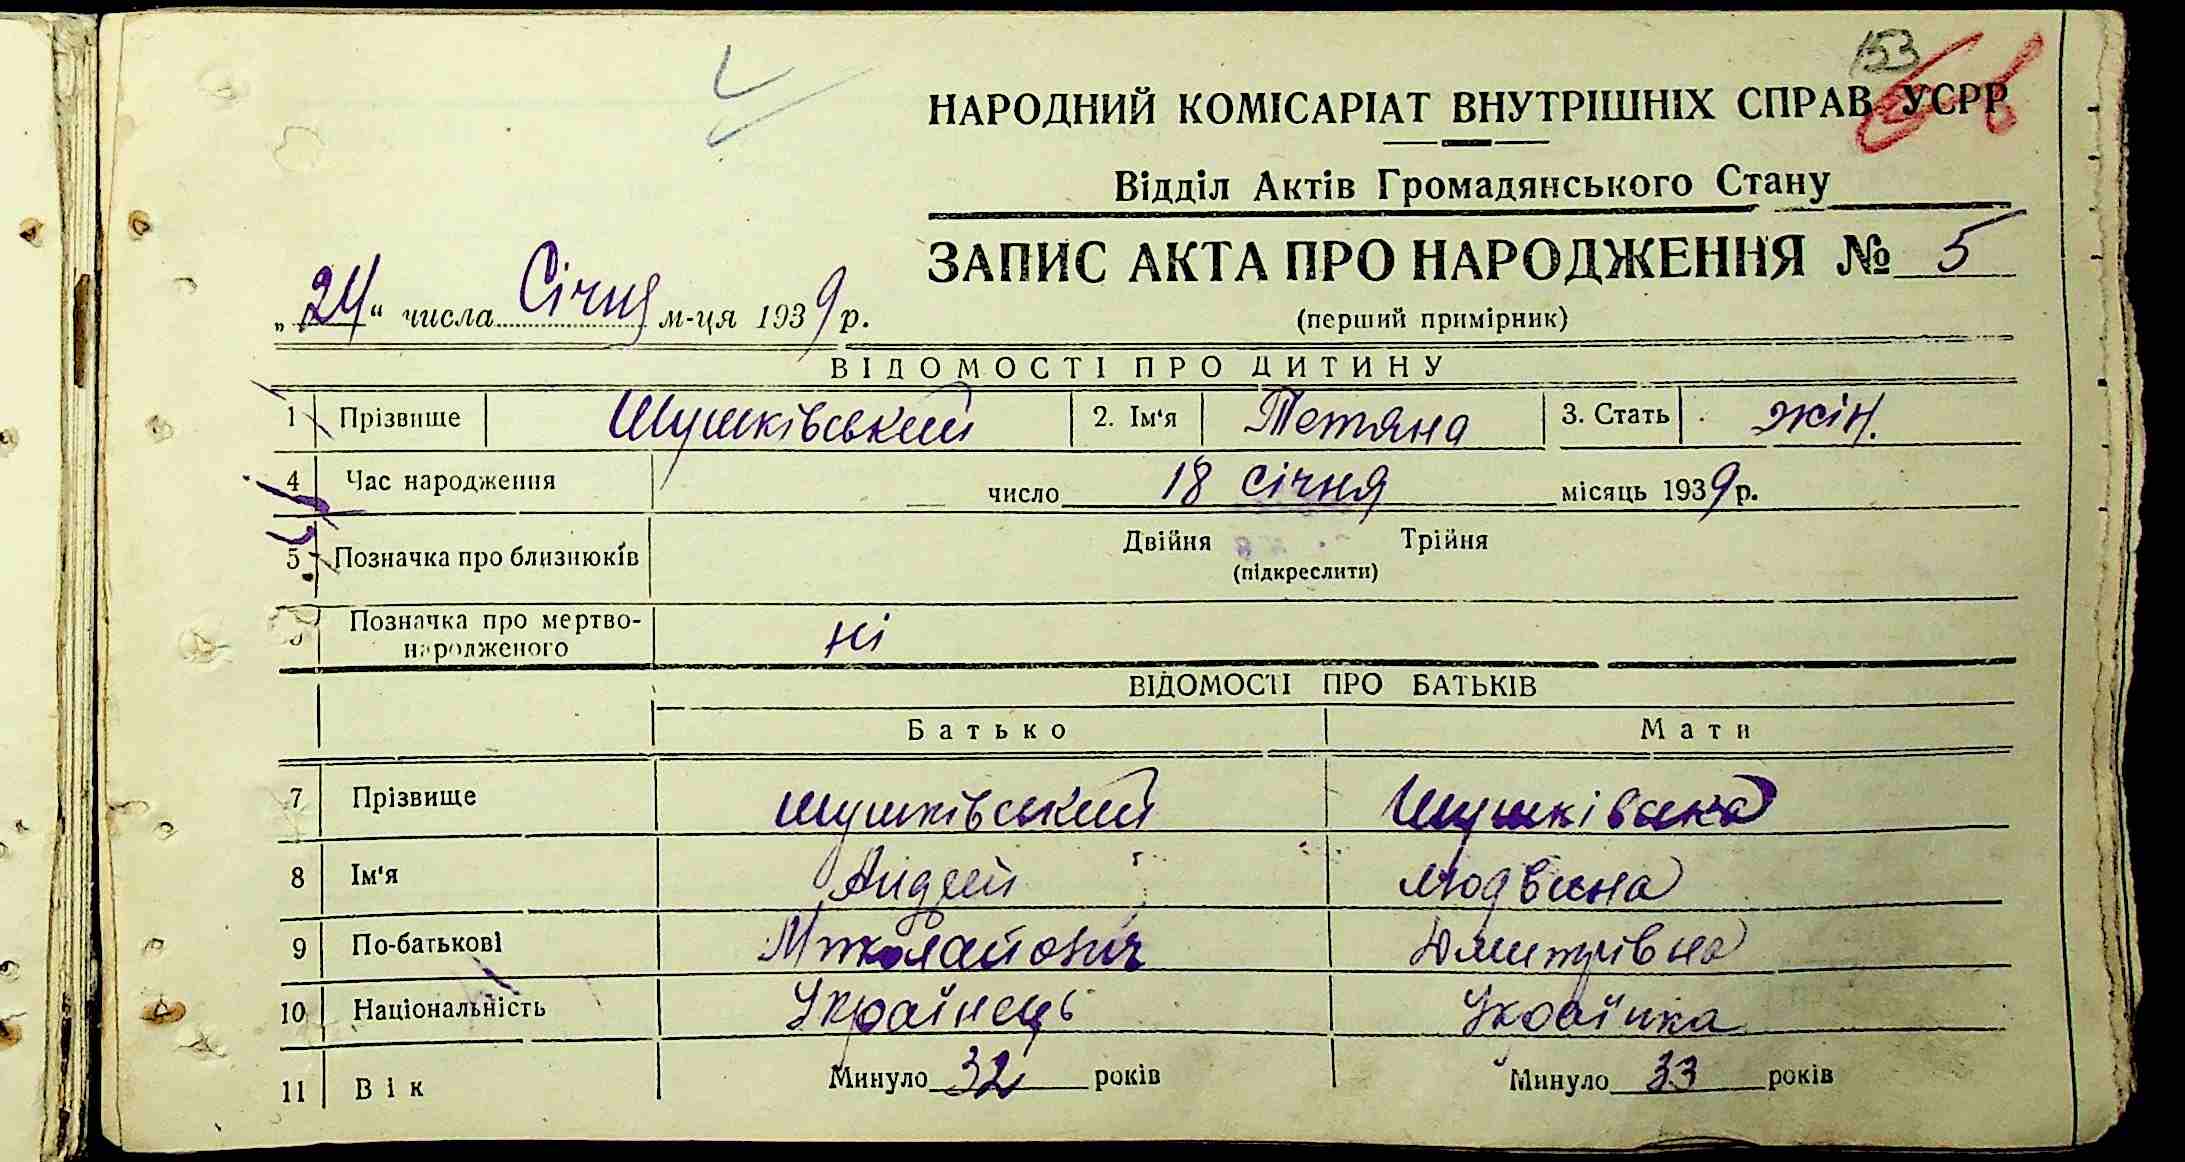 153
НАРОДНИЙ КОМІСАРІАТ ВНУТРІШНІХ СПРАВ УСРР
Відділ Актів Громадянського Стану
ЗАПИС АКТА ПРО НАРОДЖЕННЯ № 5
„24“ числа Січня м-ця 1939 р.
(перший примірник)
ВІДОМОСТІ ПРО ДИТИНУ
1 Прізвище Шушківський 2. Ім'я Тетяна 3. Стать жін.
4 Час народження число 18 січня місяць 1939 р.
5 Позначка про близнюків Двійня Трійня
(підкреслити)
Позначка про мертво-
народженого ні
ВІДОМОСТІ ПРО БАТЬКІВ
Батько Мати
7 Прізвище Шушківський Шушківська
8 Ім'я Андрей Людвина
9 По-батькові Миколайович Дмитрівна
10 Національність Українець Українка
11 Вік Минуло 32 років Минуло 33 років